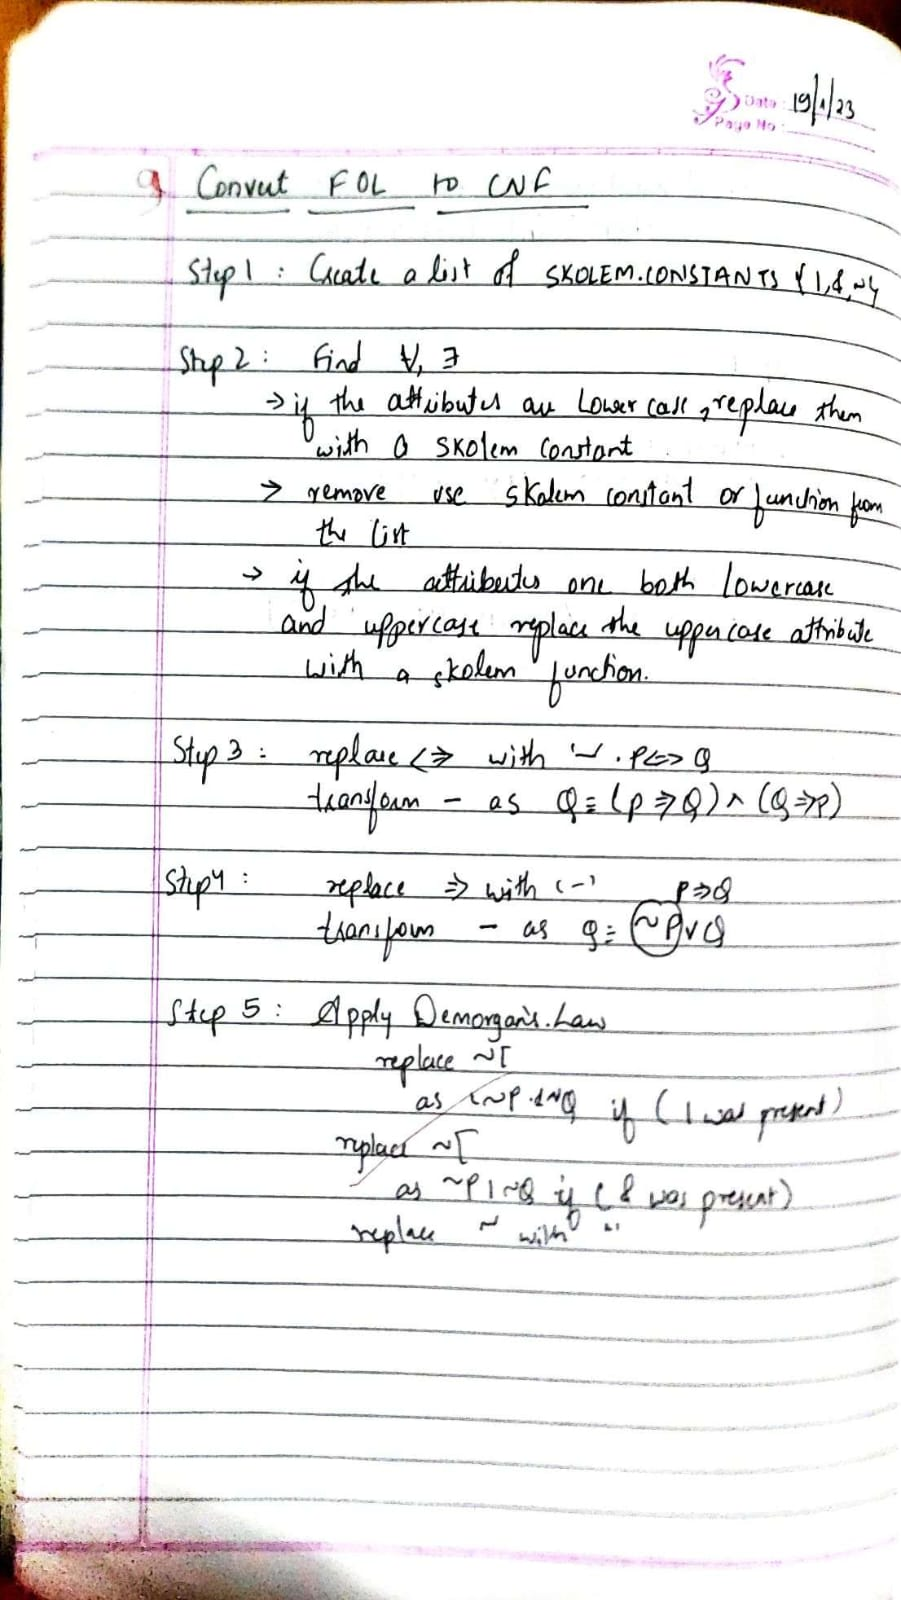 Date: 19/1/23
Page No:
9 Convert FOL to CNF
Step 1 : Create a list of SKOLEM.CONSTANTS
Step 2 : Find ∀, ∃
→ if the attributes are Lower case, replace them
with a skolem constant
→ remove use skolem constant or function from
the list
→ if the attributes one both lowercase
and uppercase replace the uppercase attribute
with a skolem function.
Step 3 : replace <=> with '-'. P<=>Q
transform - as Q = (P⇒Q) ∧ (Q⇒P)
Step 4 : replace ⇒ with '-' P⇒Q
transform - as Q = ~P∨Q
Step 5 : Apply Demorgan's.Law
replace ~[
as ~P & ~Q if ( | was present)
replace ~[
as ~P | ~Q if ( & was present)
replace ~ with ''